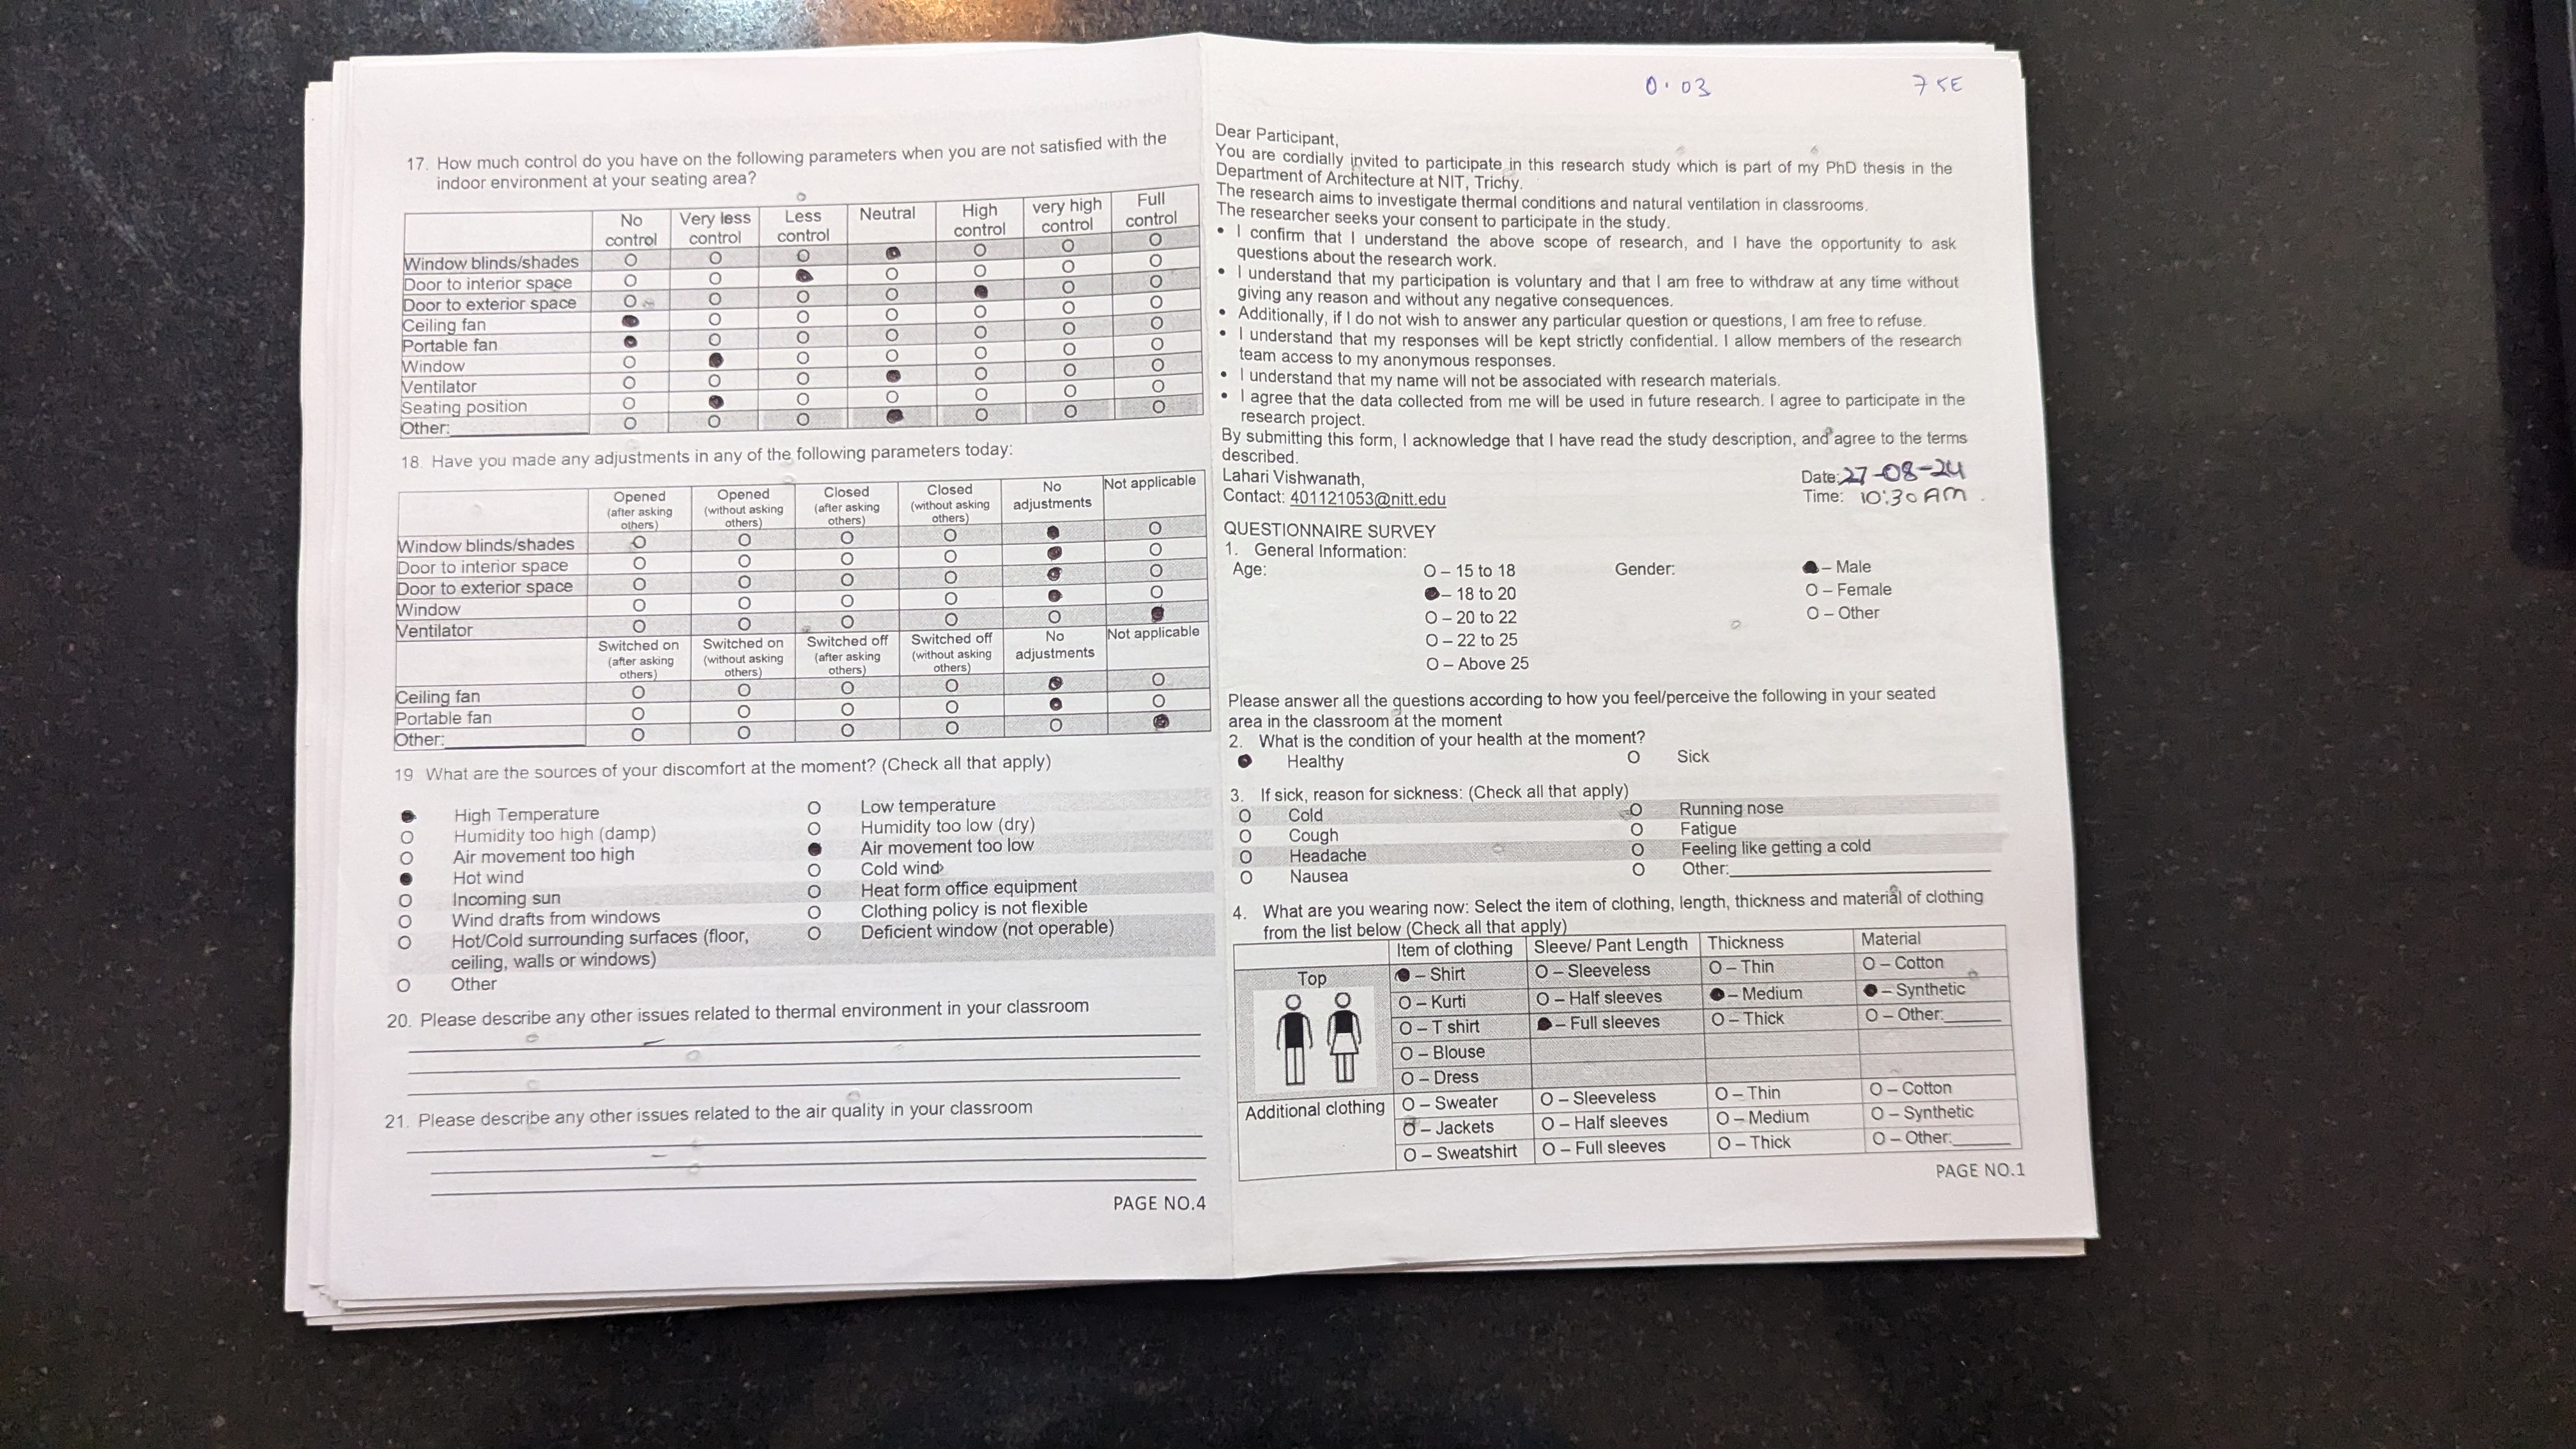 17. How much control do you have on the following parameters when you are not satisfied with the
indoor environment at your seating area?
No control Very less control Less control Neutral High control very high control Full control
Window blinds/shades O O O ● O O O
Door to interior space O O ● O O O O
Door to exterior space O O O O ● O O
Ceiling fan ● O O O O O O
Portable fan ● O O O O O O
Window O ● O O O O O
Ventilator O O O ● O O O
Seating position O ● O O O O O
Other:____________ O O O ● O O O
18. Have you made any adjustments in any of the following parameters today:
Opened (after asking others) Opened (without asking others) Closed (after asking others) Closed (without asking others) No adjustments Not applicable
Window blinds/shades O O O O ● O
Door to interior space O O O O ● O
Door to exterior space O O O O ● O
Window O O O O ● O
Ventilator O O O O O ●
Switched on (after asking others) Switched on (without asking others) Switched off (after asking others) Switched off (without asking others) No adjustments Not applicable
Ceiling fan O O O O ● O
Portable fan O O O O ● O
Other:____________ O O O O O ●
19 What are the sources of your discomfort at the moment? (Check all that apply)
● High Temperature O Low temperature
O Humidity too high (damp) O Humidity too low (dry)
O Air movement too high ● Air movement too low
● Hot wind O Cold wind
O Incoming sun O Heat form office equipment
O Wind drafts from windows O Clothing policy is not flexible
O Hot/Cold surrounding surfaces (floor, O Deficient window (not operable)
ceiling, walls or windows)
O Other
20. Please describe any other issues related to thermal environment in your classroom
21. Please describe any other issues related to the air quality in your classroom
PAGE NO.4
0.03 75E
Dear Participant,
You are cordially invited to participate in this research study which is part of my PhD thesis in the
Department of Architecture at NIT, Trichy.
The research aims to investigate thermal conditions and natural ventilation in classrooms.
The researcher seeks your consent to participate in the study.
• I confirm that I understand the above scope of research, and I have the opportunity to ask
questions about the research work.
• I understand that my participation is voluntary and that I am free to withdraw at any time without
giving any reason and without any negative consequences.
• Additionally, if I do not wish to answer any particular question or questions, I am free to refuse.
• I understand that my responses will be kept strictly confidential. I allow members of the research
team access to my anonymous responses.
• I understand that my name will not be associated with research materials.
• I agree that the data collected from me will be used in future research. I agree to participate in the
research project.
By submitting this form, I acknowledge that I have read the study description, and agree to the terms
described.
Lahari Vishwanath, Date: 27-08-24
Contact: 401121053@nitt.edu Time: 10:30 AM.
QUESTIONNAIRE SURVEY
1. General Information:
Age: O – 15 to 18 Gender: ● – Male
● – 18 to 20 O – Female
O – 20 to 22 O – Other
O – 22 to 25
O – Above 25
Please answer all the questions according to how you feel/perceive the following in your seated
area in the classroom at the moment
2. What is the condition of your health at the moment?
● Healthy O Sick
3. If sick, reason for sickness: (Check all that apply)
O Cold O Running nose
O Cough O Fatigue
O Headache O Feeling like getting a cold
O Nausea O Other:____________
4. What are you wearing now: Select the item of clothing, length, thickness and material of clothing
from the list below (Check all that apply)
Item of clothing Sleeve/ Pant Length Thickness Material
Top ● – Shirt O – Sleeveless O – Thin O – Cotton
O – Kurti O – Half sleeves ● – Medium ● – Synthetic
O – T shirt ● – Full sleeves O – Thick O – Other:______
O – Blouse
O – Dress
Additional clothing O – Sweater O – Sleeveless O – Thin O – Cotton
O – Jackets O – Half sleeves O – Medium O – Synthetic
O – Sweatshirt O – Full sleeves O – Thick O – Other:______
PAGE NO.1